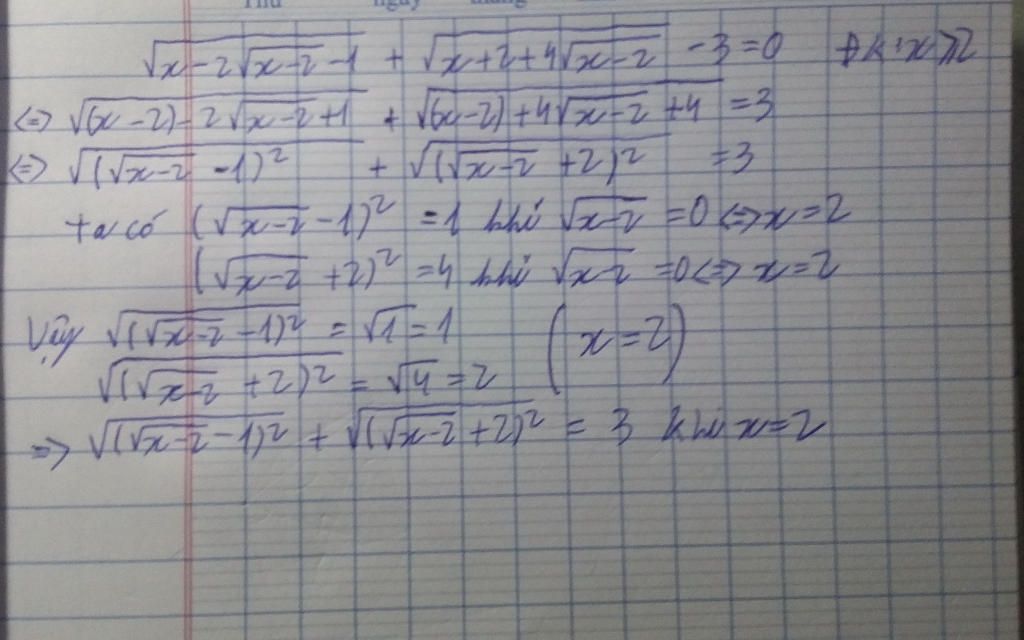 Thứ ngày tháng
√(x-2√(x-2)-1) + √(x+2+4√(x-2)) -3=0 ĐK: x≥2
<=> √((x-2)-2√(x-2)+1) + √((x-2)+4√(x-2)+4) =3
<=> √((√(x-2) -1)²) + √((√(x-2) +2)²) =3
ta có (√(x-2) -1)² =1 khi √(x-2) =0 <=> x=2
(√(x-2) +2)² =4 khi √(x-2) =0 <=> x=2
Vậy √((√(x-2) -1)²) = √1 =1 (x=2)
√((√(x-2) +2)²) = √4 =2
=> √((√(x-2) -1)²) + √((√(x-2) +2)²) = 3 khi x=2